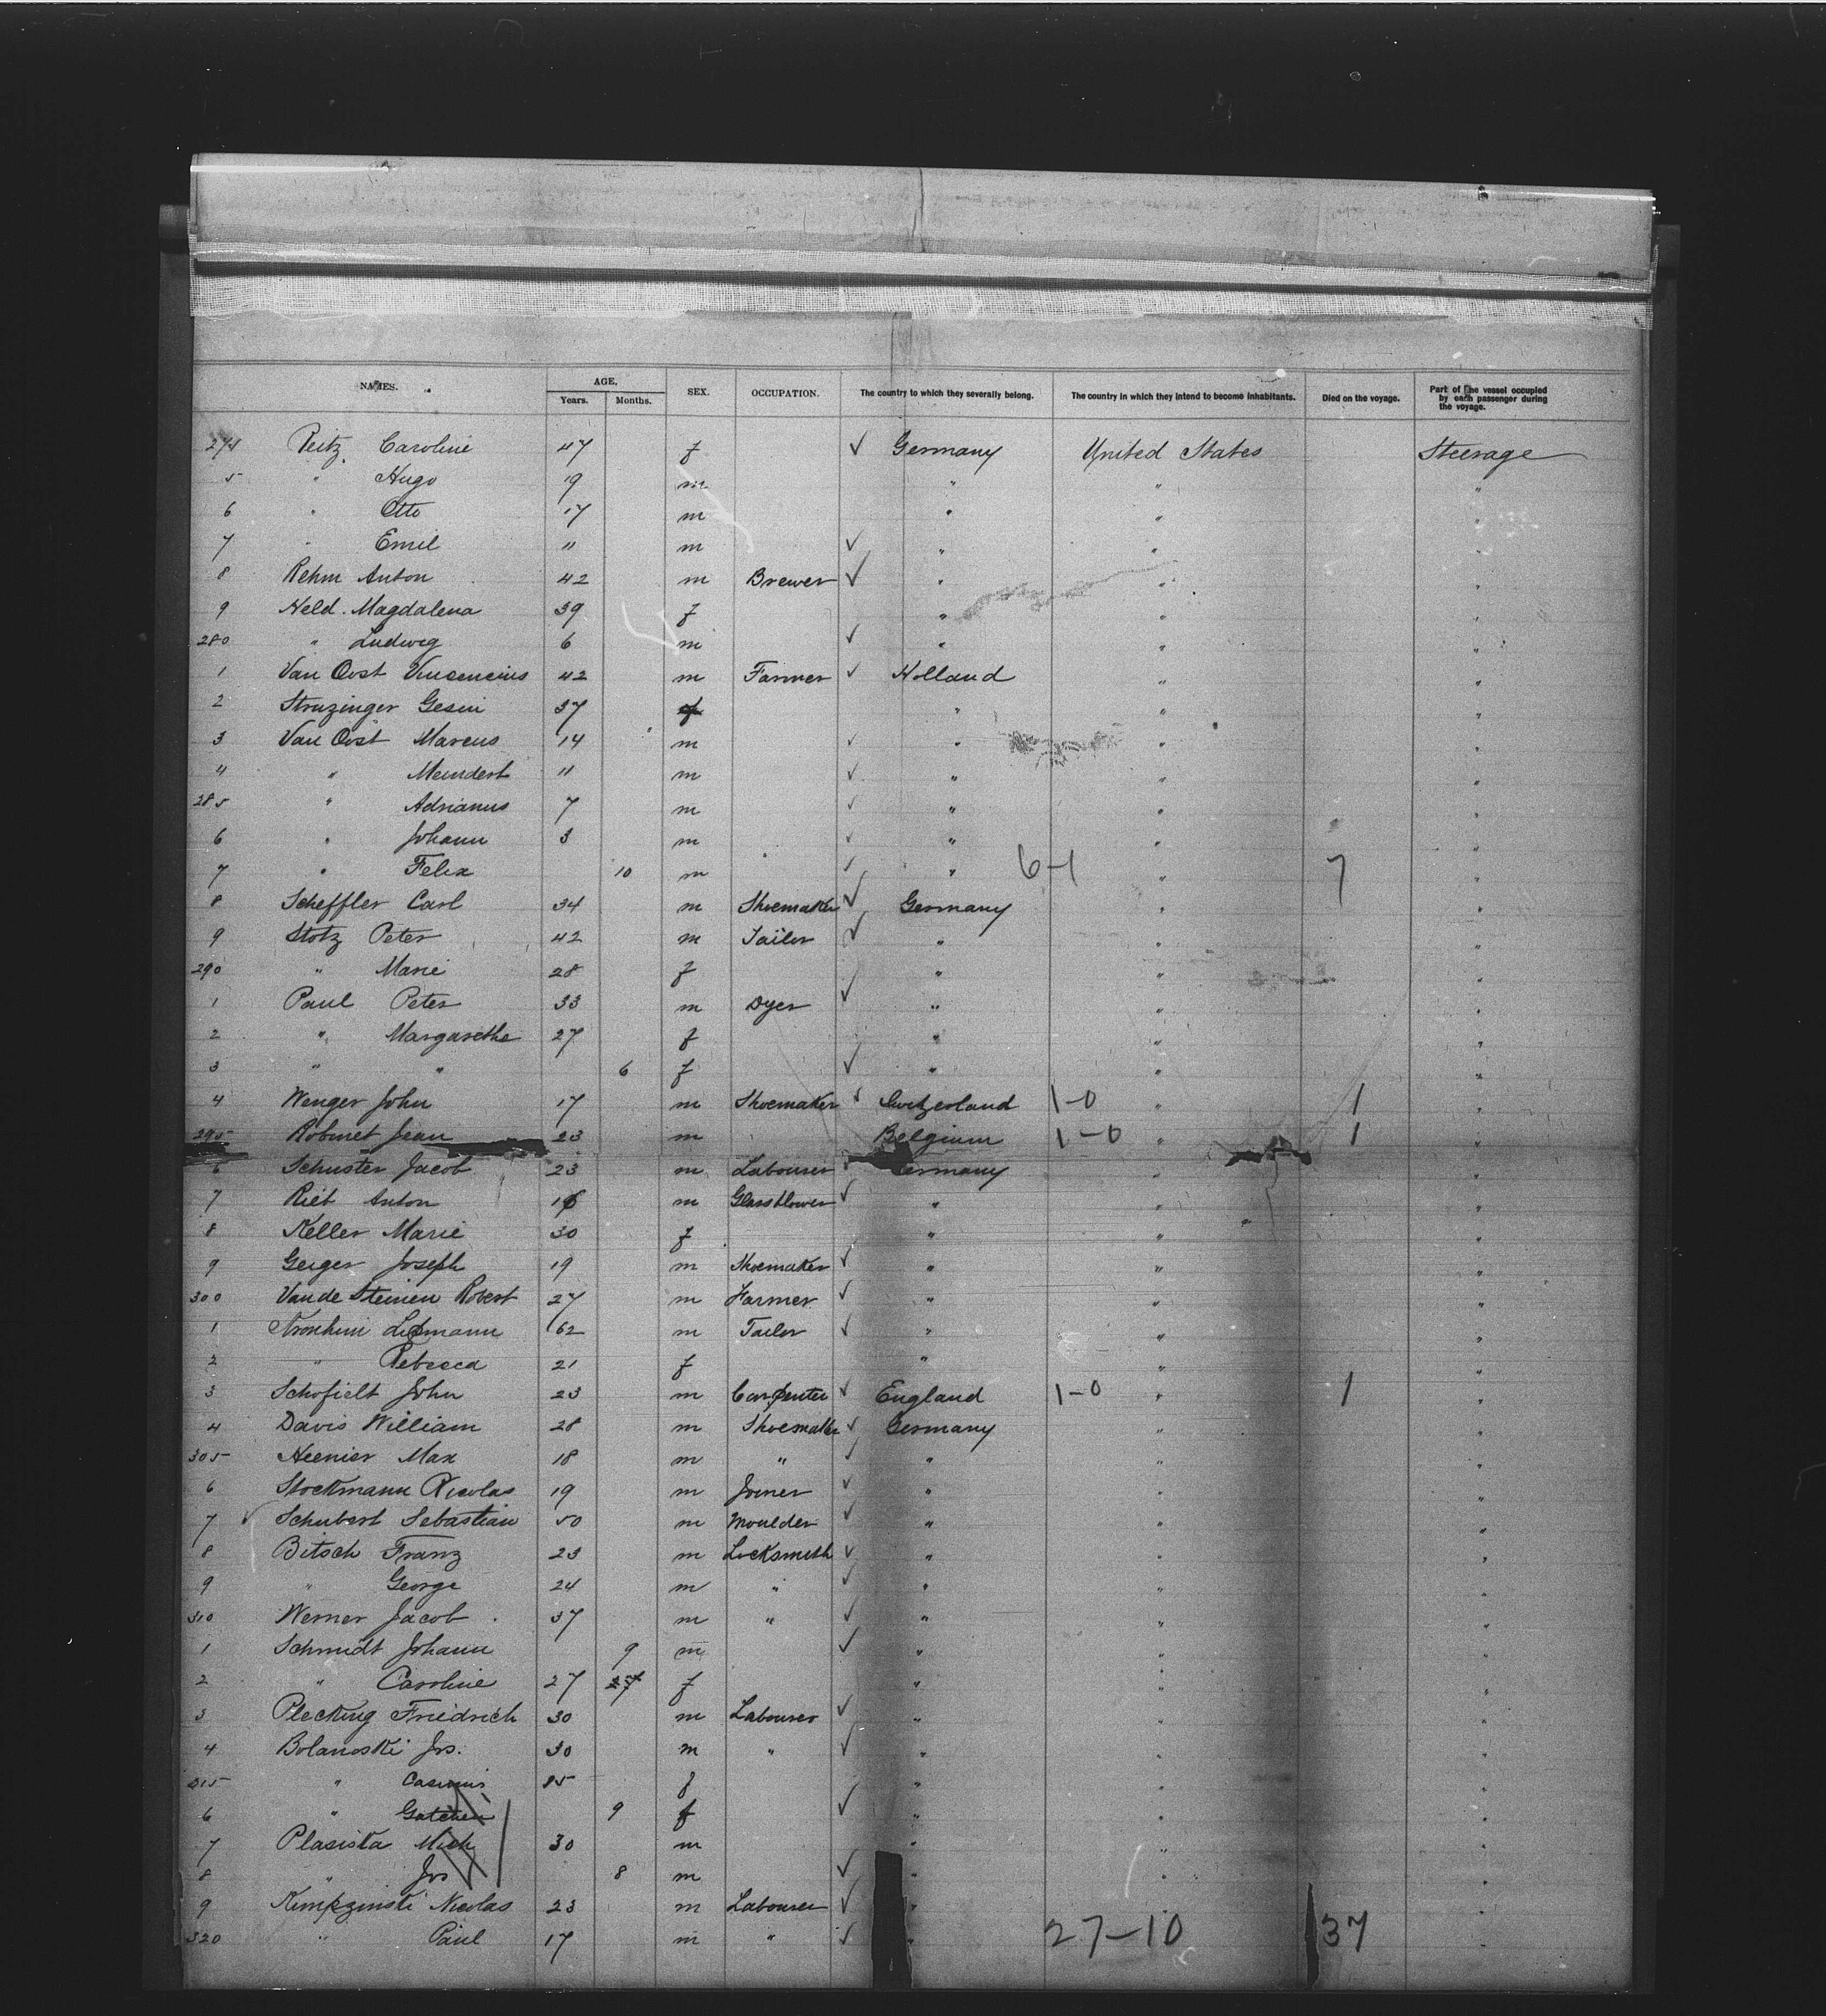 NAMES. AGE, Years. Months. SEX. OCCUPATION. The country to which they severally belong. The country in which they intend to become inhabitants. Died on the voyage. Part of the vessel occupied by each passenger during the voyage.
274 Reitz Caroline 47 f ✓ Germany United States Steerage
5 " Hugo 19 m " " "
6 " Otto 17 m " " "
7 " Emil 11 m ✓ " " "
8 Rehm Anton 42 m Brewer ✓ " " "
9 Held Magdalena 39 f " " "
280 " Ludwig 6 m ✓ " " "
1 Van Oost Vincencius 42 m Farmer ✓ Holland " "
2 Struzinger Gesin 37 f " " "
3 Van Oost Marcus 14 m ✓ " " "
4 " Meindert 11 m ✓ " " "
285 " Adrianus 7 m ✓ " " "
6 " Johann 3 m ✓ " " "
7 " Felix 10 m ✓ " 6-1 " 7 "
8 Scheffler Carl 34 m Shoemaker ✓ Germany " "
9 Stotz Peter 42 m Tailor ✓ " " "
290 " Marie 28 f " " "
1 Paul Peter 33 m Dyer ✓ " " "
2 " Margarethe 27 f " " "
3 " " 6 f ✓ " " "
4 Wenger John 17 m Shoemaker ✓ Switzerland 1-0 " 1 "
295 Robinet Jean 23 m Belgium 1-0 " 1 "
6 Schuster Jacob 23 m Labourer ✓ Germany " "
7 Riet Anton 16 m Glassblower ✓ " " "
8 Keller Marie 30 f " " "
9 Geiger Joseph 19 m Shoemaker ✓ " " "
300 Van de Steinen Robert 27 m Farmer ✓ " " "
1 Lipmann 62 m Tailor ✓ " " "
2 " Rebecca 21 f " " "
3 Schofielt John 23 m Carpenter ✓ England 1-0 " 1 "
4 Davis William 28 m Shoemaker ✓ Germany " "
305 Heenier Max 18 m " ✓ " " "
6 Stockmann Nicolas 19 m Joiner ✓ " " "
7 ✓ Schubert Sebastian 50 m Moulder ✓ " " "
8 Bitsch Franz 23 m Locksmith ✓ " " "
9 " George 24 m " ✓ " " "
310 Werner Jacob 37 m " ✓ " " "
1 Schmidt Johann 9 m ✓ " " "
2 " Caroline 27 f " " "
3 Plecking Friedrich 30 m Labourer ✓ " " "
4 Bolanoski Jos. 30 m " ✓ " " "
315 " Casimir 25 f " " "
6 " 9 f ✓ " " "
7 Plasista Mich 30 m " " "
8 " Jos 8 m ✓ " " "
9 Kimpzinski Nicolas 23 m Labourer ✓ " " "
320 " Paul 17 m " ✓ " 27-10 37 "